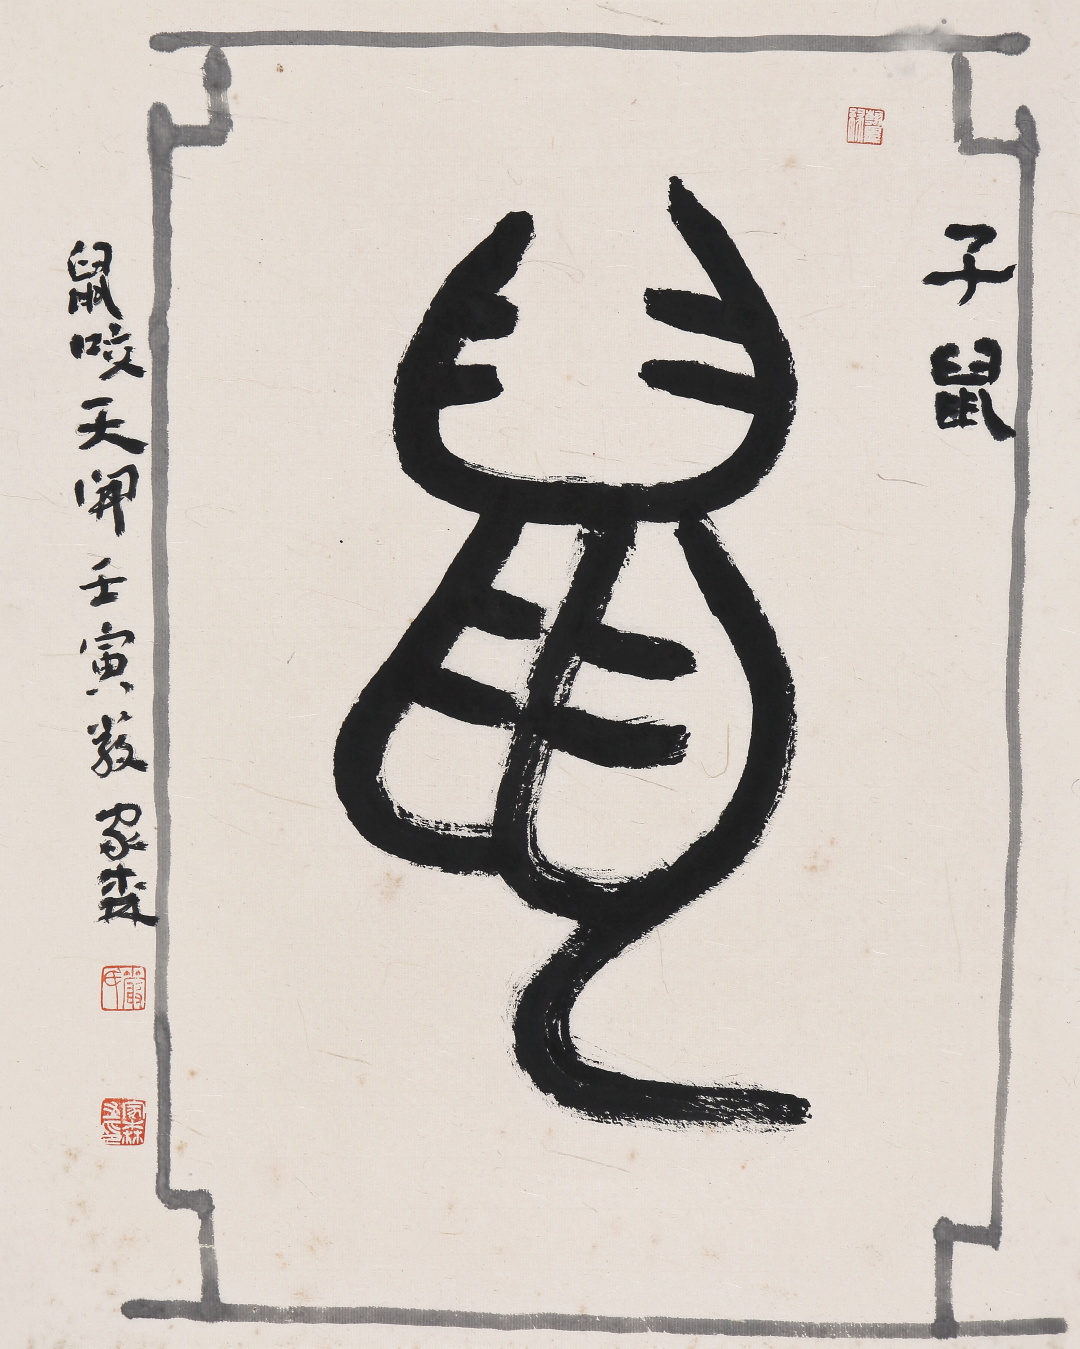 子鼠
鼠
鼠咬天開 壬寅 嚴家森